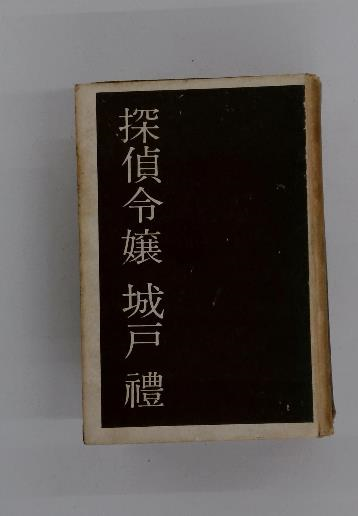 探偵令嬢 城戸禮